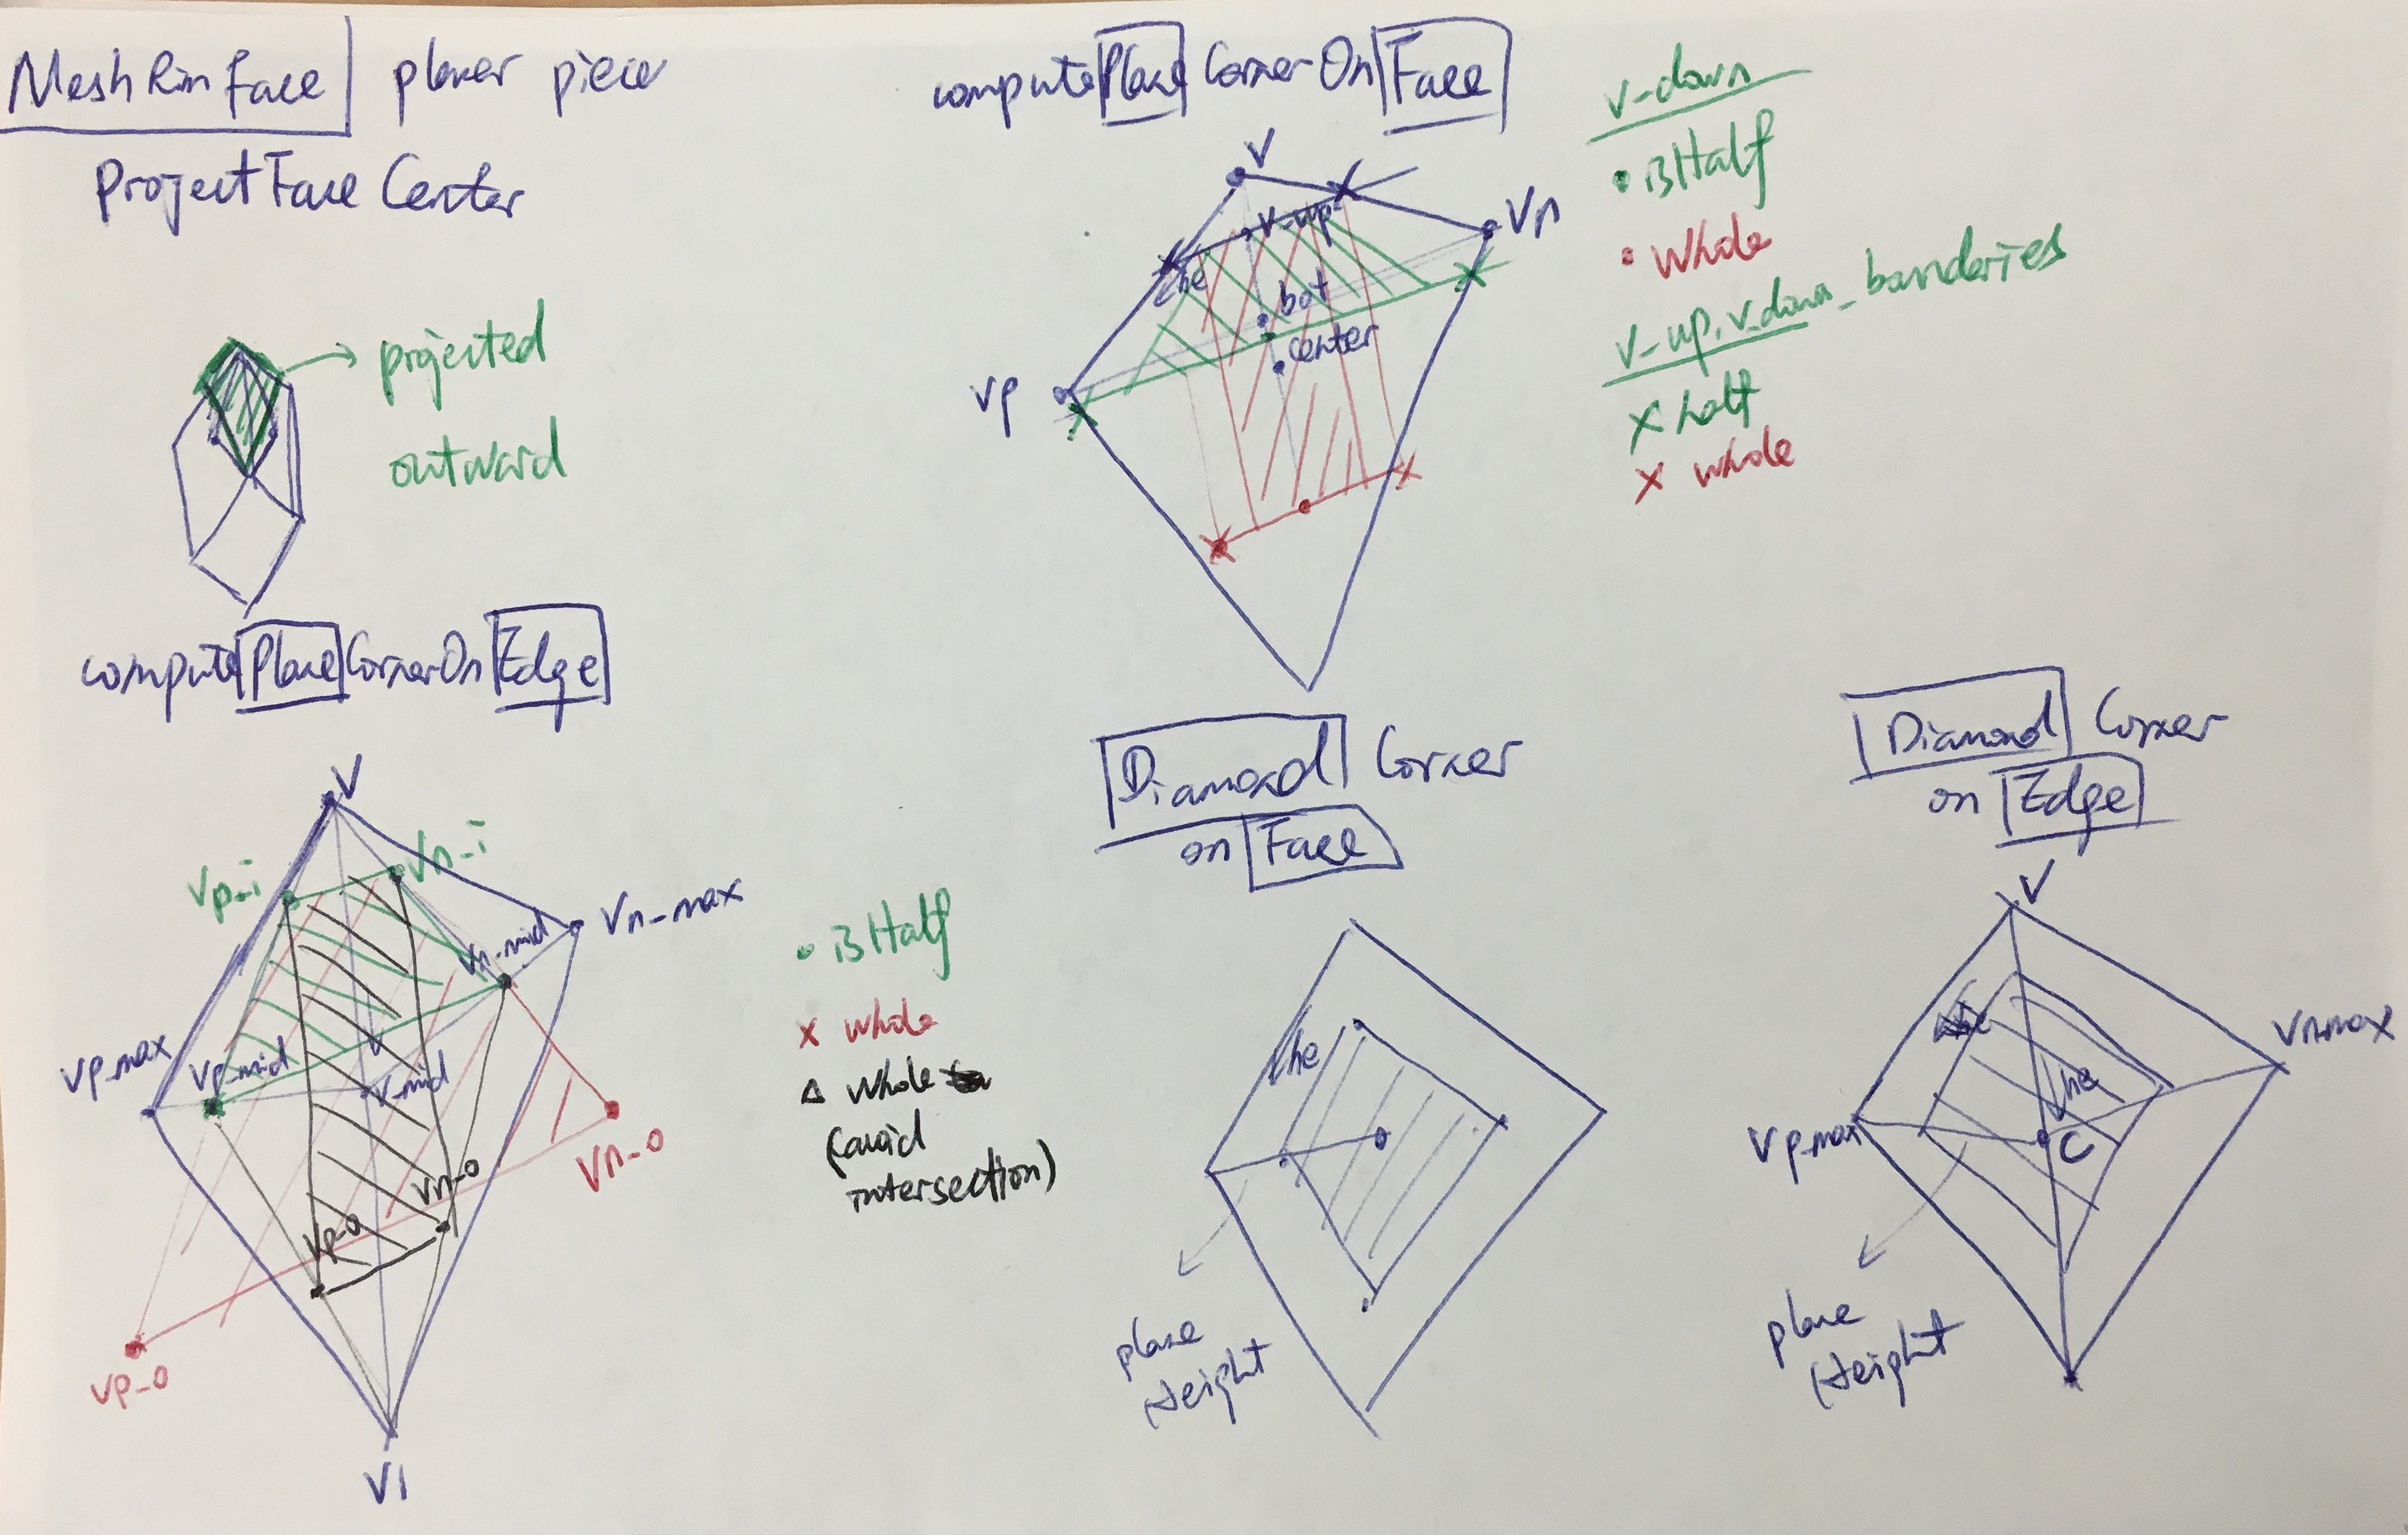 MeshRimFace planer piece
ProjectFaceCenter
projected
outward
computePlaneCornerOnFace
V
Vn
v-up
he
bot
center
Vp
v-down
• isHalf
• whole
v-up, v-down_boundaries
x half
x whole
computePlaneCornerOnEdge
V
Vp-i
Vn-i
Vn-max
Vn-mid
Vp-max
Vp-mid
v-mid
Vn-o
Vp-o
Vn-o
Vp-o
V1
• isHalf
x whole
Δ whole
(avoid
intersection)
Diamond Corner
on Face
he
plane
Height
Diamond Corner
on Edge
V
he
Vnmax
Vp-max
C
plane
Height